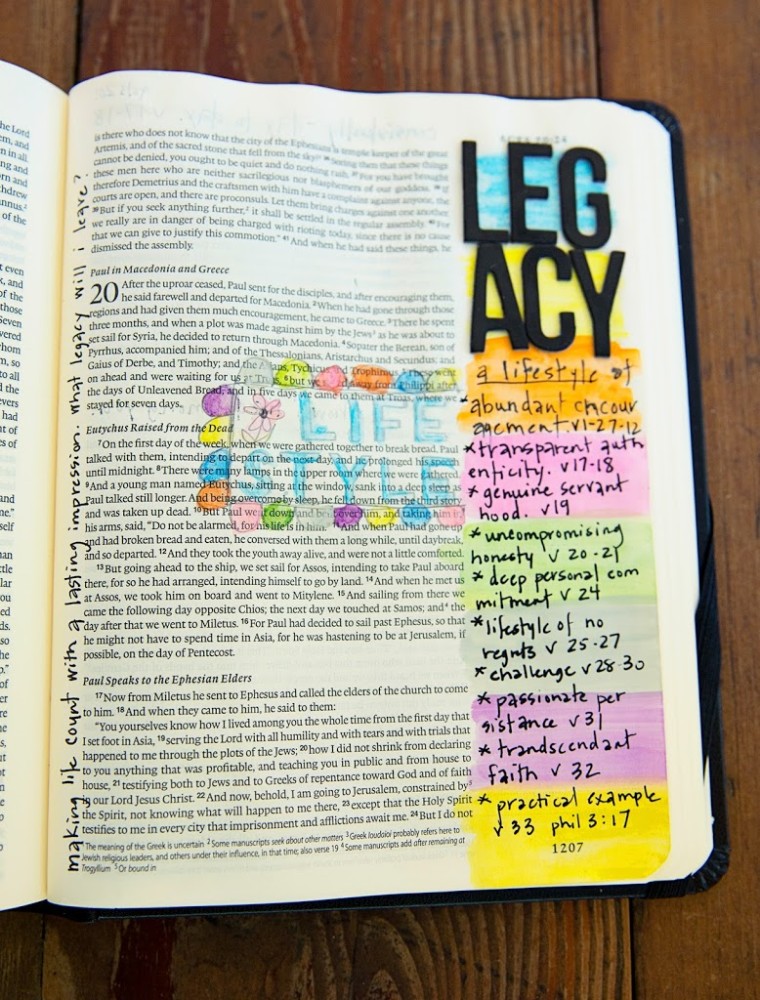 is there who does not know that the city of the Ephesians is temple keeper of the great
Artemis, and of the sacred stone that fell from the sky? 36 Seeing then that these things
cannot be denied, you ought to be quiet and do nothing rash. 37 For you have brought
these men here who are neither sacrilegious nor blasphemers of our goddess. 38 If
therefore Demetrius and the craftsmen with him have a complaint against anyone, the
courts are open, and there are proconsuls. Let them bring charges against one another.
39 But if you seek anything further, it shall be settled in the regular assembly. 40 For
we really are in danger of being charged with rioting today, since there is no cause
that we can give to justify this commotion." 41 And when he had said these things, he
dismissed the assembly.
Paul in Macedonia and Greece
20 After the uproar ceased, Paul sent for the disciples, and after encouraging them,
he said farewell and departed for Macedonia. 2 When he had gone through those
regions and had given them much encouragement, he came to Greece. 3 There he spent
three months, and when a plot was made against him by the Jews as he was about to
set sail for Syria, he decided to return through Macedonia. 4 Sopater the Berean, son of
Pyrrhus, accompanied him; and of the Thessalonians, Aristarchus and Secundus; and
Gaius of Derbe, and Timothy; and the Asians, Tychicus and Trophimus. 5 These went
on ahead and were waiting for us at Troas, 6 but we sailed away from Philippi after
the days of Unleavened Bread, and in five days we came to them at Troas, where we
stayed for seven days.
Eutychus Raised from the Dead
7 On the first day of the week, when we were gathered together to break bread, Paul
talked with them, intending to depart on the next day, and he prolonged his speech
until midnight. 8 There were many lamps in the upper room where we were gathered.
9 And a young man named Eutychus, sitting at the window, sank into a deep sleep as
Paul talked still longer. And being overcome by sleep, he fell down from the third story
and was taken up dead. 10 But Paul went down and bent over him, and taking him in
his arms, said, "Do not be alarmed, for his life is in him." 11 And when Paul had gone up
and had broken bread and eaten, he conversed with them a long while, until daybreak,
and so departed. 12 And they took the youth away alive, and were not a little comforted.
13 But going ahead to the ship, we set sail for Assos, intending to take Paul aboard
there, for so he had arranged, intending himself to go by land. 14 And when he met us
at Assos, we took him on board and went to Mitylene. 15 And sailing from there we
came the following day opposite Chios; the next day we touched at Samos; and 4 the
day after that we went to Miletus. 16 For Paul had decided to sail past Ephesus, so that
he might not have to spend time in Asia, for he was hastening to be at Jerusalem, if
possible, on the day of Pentecost.
Paul Speaks to the Ephesian Elders
17 Now from Miletus he sent to Ephesus and called the elders of the church to come
to him. 18 And when they came to him, he said to them:
"You yourselves know how I lived among you the whole time from the first day that
I set foot in Asia, 19 serving the Lord with all humility and with tears and with trials that
happened to me through the plots of the Jews; 20 how I did not shrink from declaring
to you anything that was profitable, and teaching you in public and from house to
house, 21 testifying both to Jews and to Greeks of repentance toward God and of faith
in our Lord Jesus Christ. 22 And now, behold, I am going to Jerusalem, constrained by 5
the Spirit, not knowing what will happen to me there, 23 except that the Holy Spirit
testifies to me in every city that imprisonment and afflictions await me. 24 But I do not
1 The meaning of the Greek is uncertain 2 Some manuscripts seek about other matters 3 Greek Ioudaioi probably refers here to
Jewish religious leaders, and others under their influence, in that time; also verse 19 4 Some manuscripts add after remaining at
Trogyllium 5 Or bound in
LIFE
STYLE
making life count with a lasting impression. what legacy will i leave?
LEG
ACY
a lifestyle of
*abundant encour
agement. v1-27-12
*transparent auth
enticity. v17-18
*genuine servant
hood. v19
*uncompromising
honesty v 20-21
*deep personal com
mitment v 24
*lifestyle of no
regrets v 25-27
*challenge v 28-30
*passionate per
sistance v 31
*trandscendant
faith v 32
*practical example
v 33 phil 3:17
1207